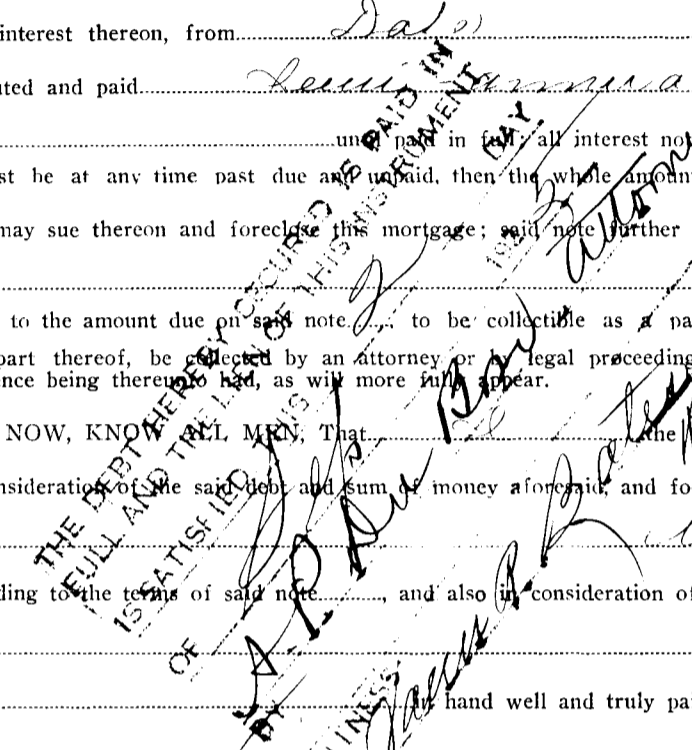 interest thereon, from Date
uted and paid
until paid in full; all interest not
st be at any time past due and unpaid, then the whole amount
may sue thereon and foreclose this mortgage; said note further
to the amount due on said note , to be collectible as a pa
part thereof, be collected by an attorney or by legal proceeding
ence being thereunto had, as will more fully appear.
NOW, KNOW ALL MEN, That the
nsideration of the said debt and sum of money aforesaid, and fo
ding to the terms of said note , and also in consideration of
in hand well and truly pa
THE DEBT HEREBY SECURED IS PAID IN
FULL AND THE LIEN OF THIS INSTRUMENT
IS SATISFIED THIS 2 DAY
OF 192
A. P. Du Bose
BY
James R. Bates